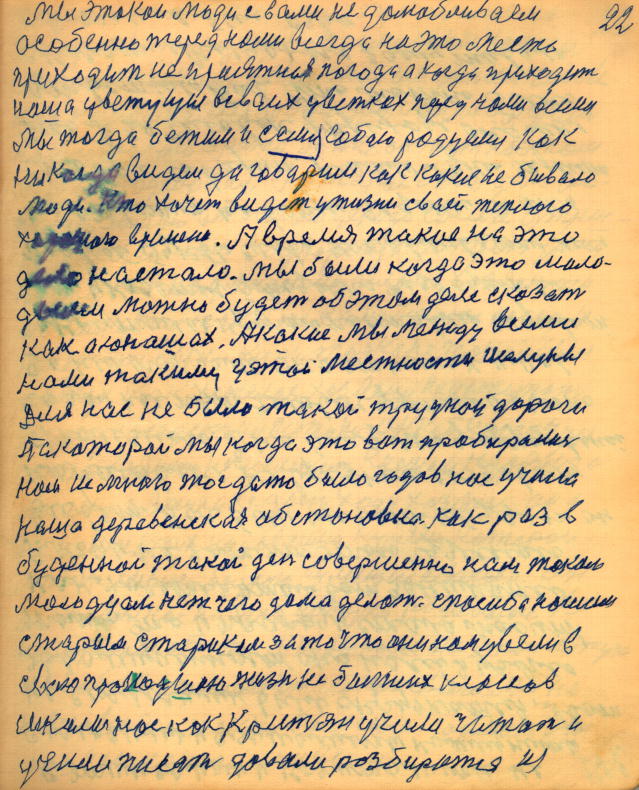 22
мы этакои люди с вами не домабливаем
особенно перед нами всегда на это место
приходит не приятная погода а когда приходит
наша цветущие в своих цветках перед нами всеми
мы тогда бежим и собою радуемся как
никогда видем да говорим как какие не бывало
люди. Кто хочет видет у жизни сваей теплого
хорошого времени. А время такое на это
дело настало. мы были когда это моло-
дыеми можно будет об этом деле сказат
как а юнашах. А какие мы между всеми
нами такими у этой местности
Для нас не было такой трудной дороги
Па которой мы когда это вот пробирались
нам не много тогда то было годов нас учила
наша деревенская обстановка как раз в
буденной такой ден совершенно нам таким
молодцам нет чого дома делат. спасиба нашим
старым старикам за то что они нам увели в
свою жизн не балших класов
школи нас как Критян учили читат и
учили писат довали розбиратся и)